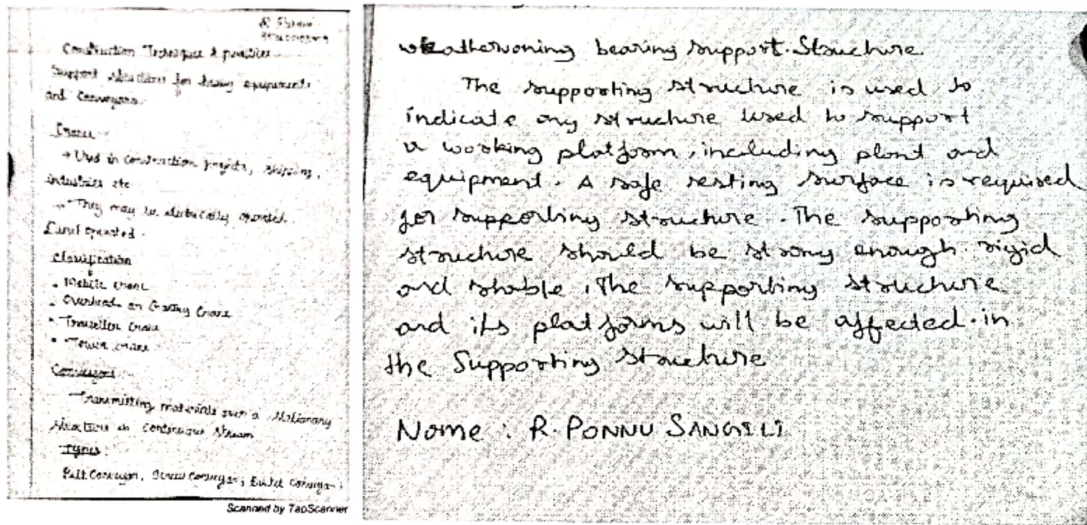 Construction Techniques & practices
Support structures for heavy equipments
and Conveyors.
Crane
→ Used in construction projects, shipping,
industries etc
→ They may be electrically operated.
hand operated.
Classification
• Mobile crane
• Overhead or Gantry Crane
• Traveller Crane
• Tower crane
Conveyors
Transmitting materials such a stationary
structure in Continuous stream
Types
Belt Conveyor, Screw conveyor, Bucket conveyor,
Scanned by TapScanner
weathervoning bearing support Structure.
The supporting structure is used to
indicate any structure used to support
a working platform, including plant and
equipment. A safe resting surface is required
for supporting structure. The supporting
structure should be strong enough rigid
and stable, The supporting structure
and its platforms will be affected in
the Supporting structure
Name : R. PONNU SANGILI